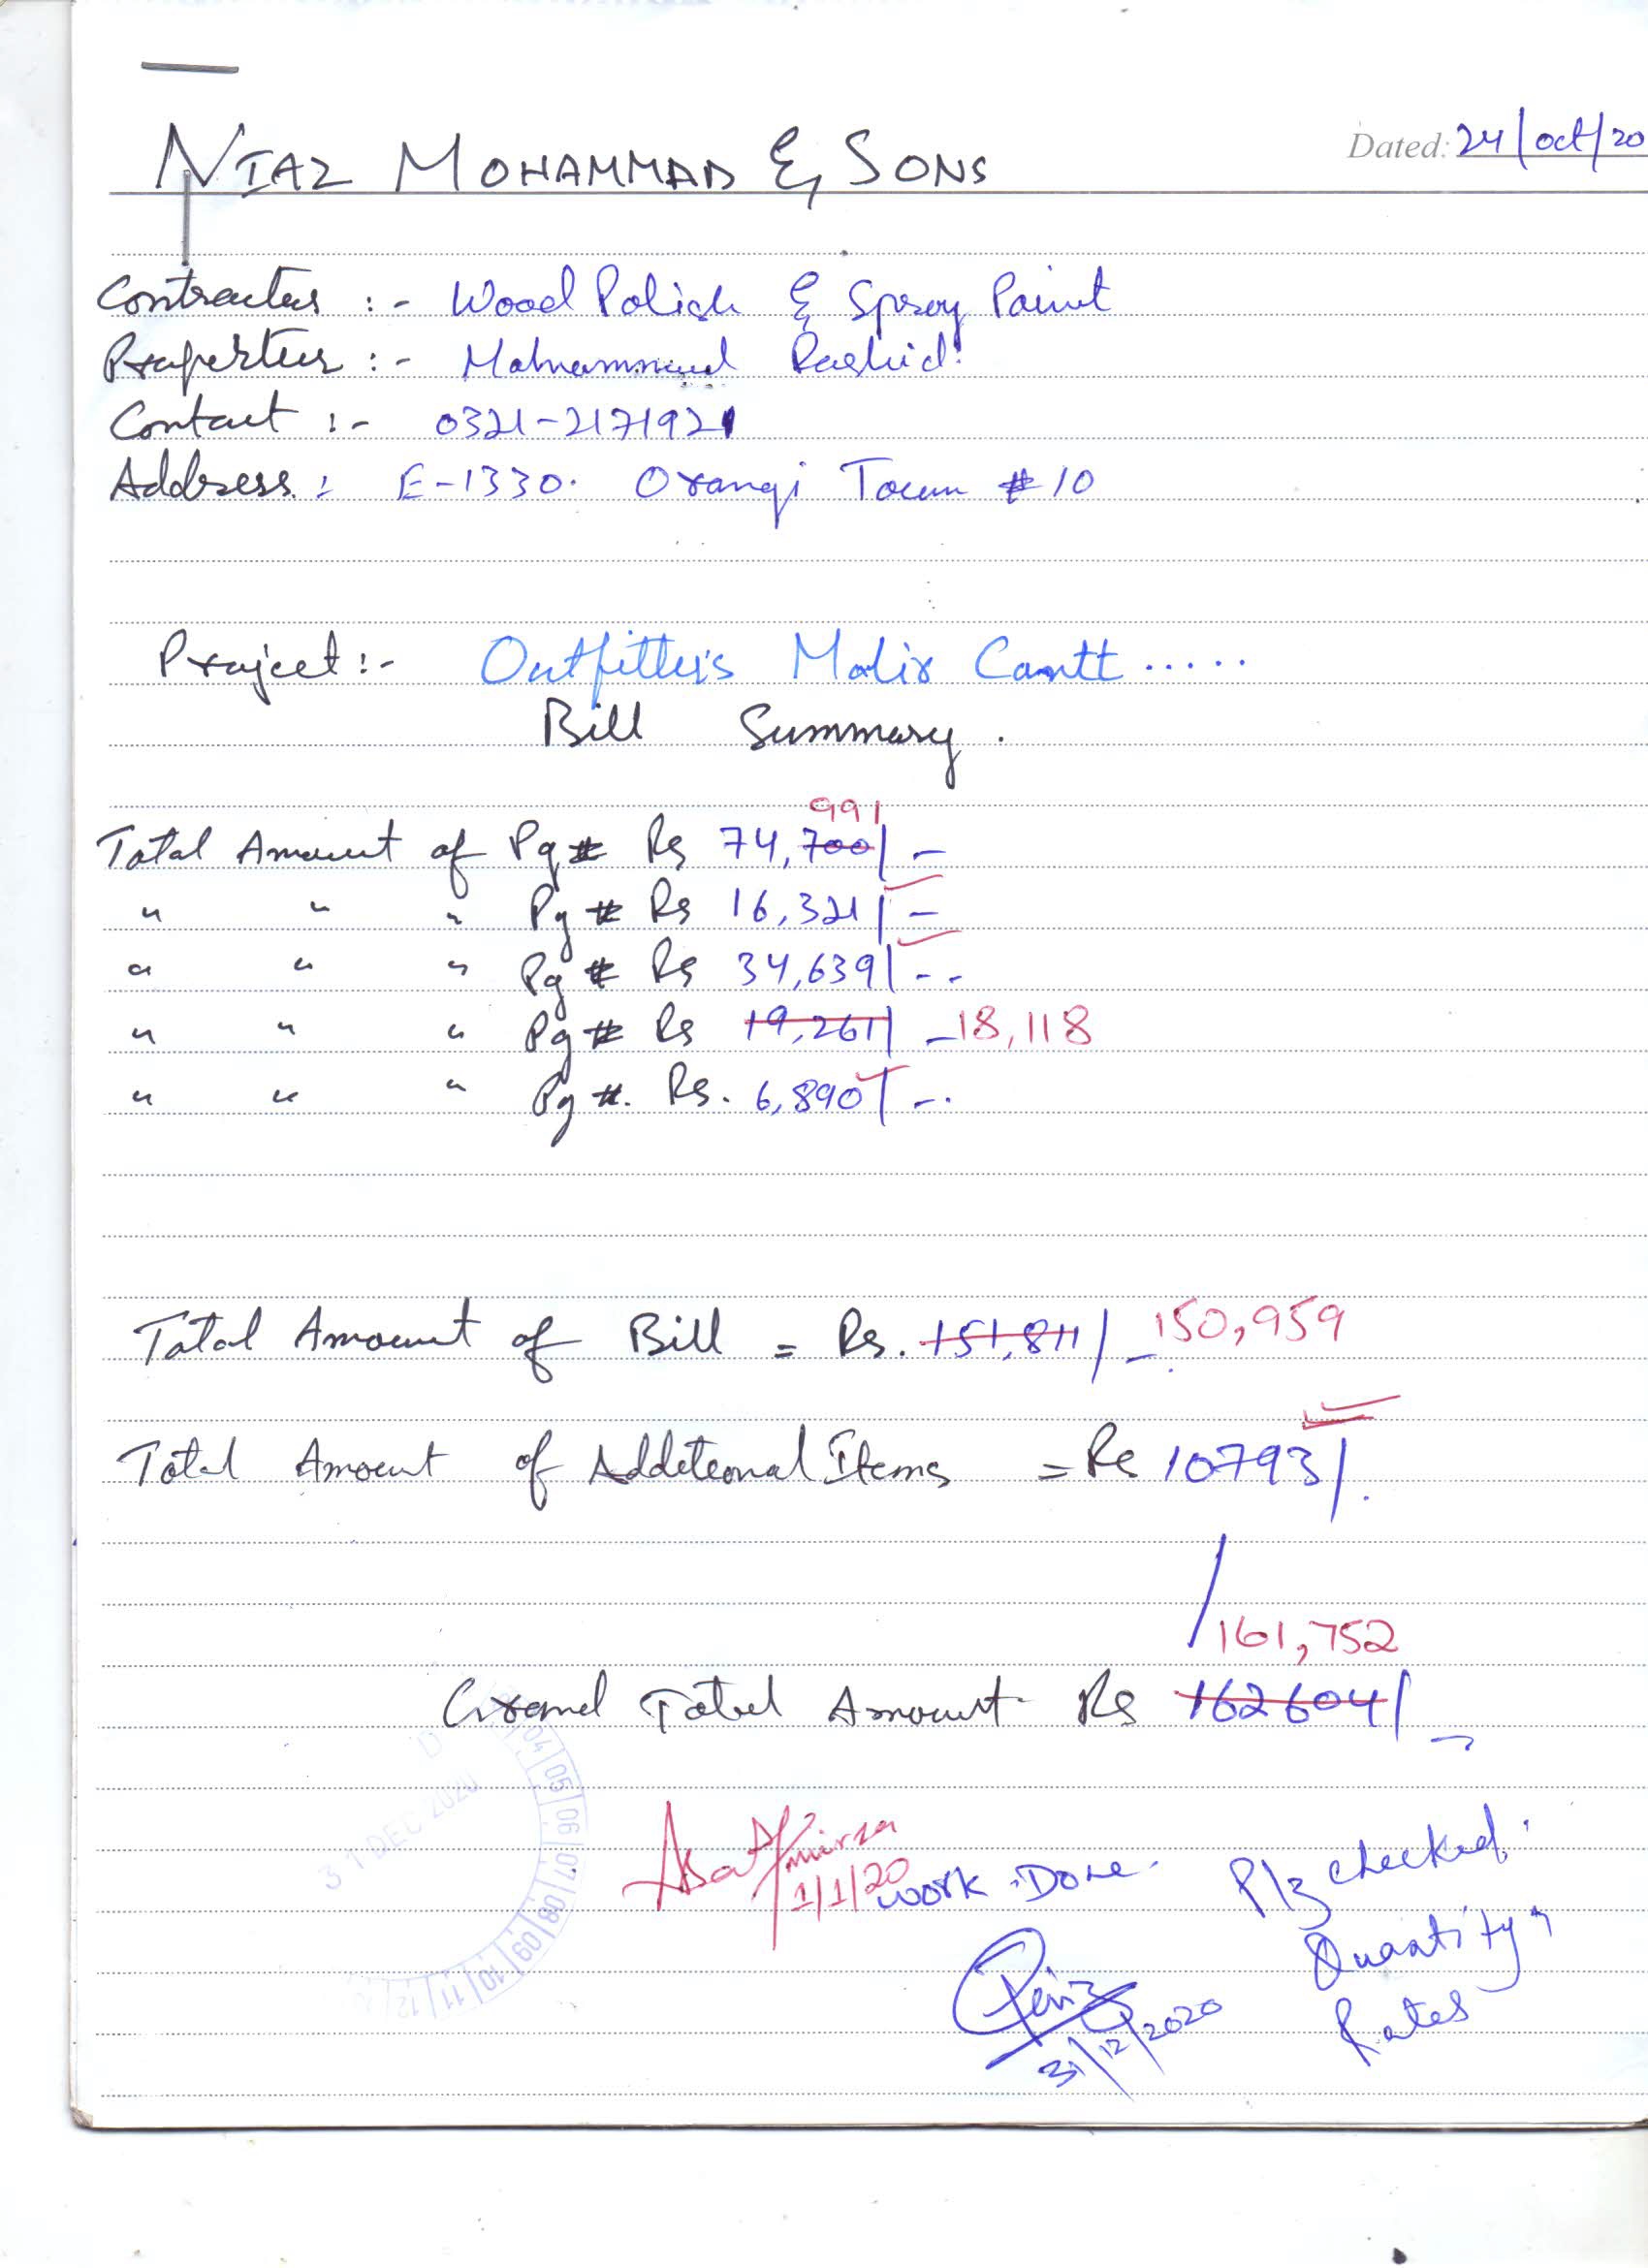 NIAZ MOHAMMAD & SONS
Dated: 24/oct/20
Contractus :- Wood Polish & Spray Paint
Properter :- Mohammad Rashid.
Contact :- 0321-2171921
Address : E-1330. Orangi Town # 10
Project :- Outfitter's Malir Cantt .....
Bill Summary.
991
Total Amount of Pg # Rs 74,700/-
" " " Pg # Rs 16,321/-
" " " Pg # Rs 34,639/--
" " " Pg # Rs 19,261/- 18,118
" " " Pg #. Rs. 6,890/-.
Total Amount of Bill = Rs. 151,811/- 150,959
Total Amount of Additional Items = Rs 10793/.
161,752
Grand Total Amount Rs 162604/-
31 DEC 2020
04 05 06 07 08 09 10 11 12
1/1/20
Work Done.
Plz checked.
Quantity,
Rates
31/12/2020